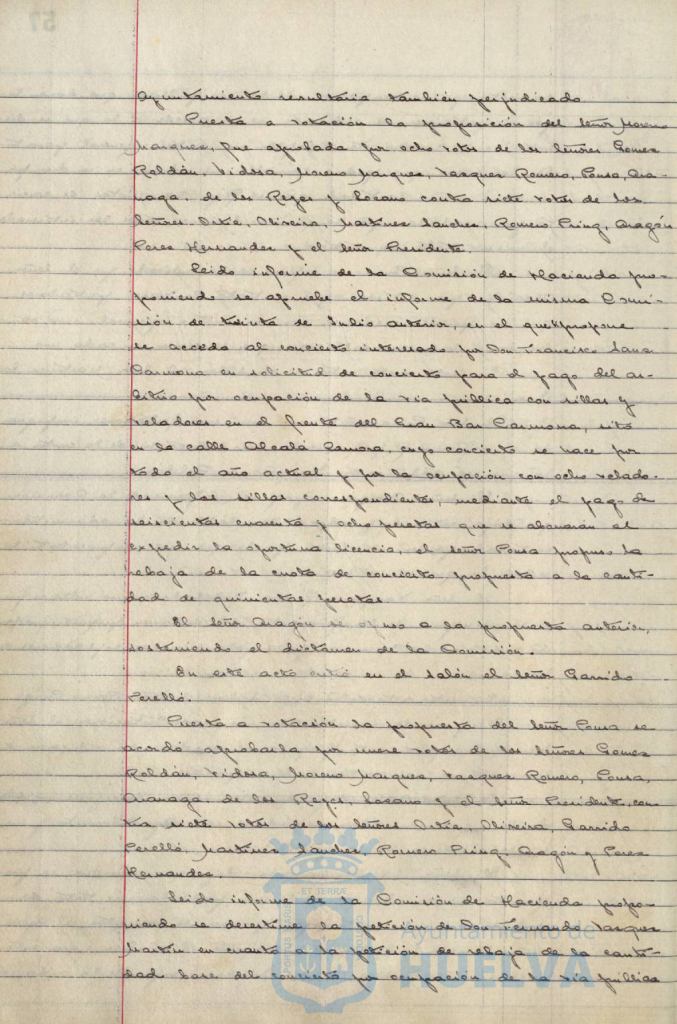 Ayuntamiento resultaria también perjudicado
Puesta a votación la proposición del Señor Moreno
Marquez, fue aprobada por ocho votos de los Señores Gomez
Roldán, Vidosa, Moreno Marquez, Vazquez Romero, Ponsa, Ara-
naga, de los Reyes y Lozano contra siete votos de los
Señores Ortiz, Oliveira, Martinez Sanchez, Romero Pring, Aragón
Perez Hernandez y el Señor Presidente.
Leido informe de la Comisión de Hacienda pro-
poniendo se apruebe el informe de la misma Comi-
sión de treinta de Julio anterior, en el que propone
se acceda al concierto interesado por Don Francisco
Carmona en solicitud de concierto para el pago del ar-
bitrio por ocupación de la vía pública con sillas y
veladores en el frente del Gran Bar Carmona, sito
en la calle Alcalá Zamora, cuyo concierto se hace por
todo el año actual y por la ocupación con ocho velado-
res y las sillas correspondientes, mediante el pago de
seiscientas cuarenta y ocho pesetas que se abonarán al
expedir la oportuna licencia, el señor Ponsa propuso la
rebaja de la cuota de concierto propuesta a la canti-
dad de quinientas pesetas.
El Señor Aragón se opuso a la propuesta anterior,
sosteniendo el dictamen de la Comisión.
En este acto entró en el salón el Señor Garrido
Perelló.
Puesta a votación la propuesta del Señor Ponsa se
acordó aprobarla por nueve votos de los Señores Gomez
Roldán, Vidosa, Moreno Marquez, Vazquez Romero, Ponsa,
Aranaga, de los Reyes, Lozano y el Señor Presidente, con-
tra siete votos de los Señores Ortiz, Oliveira, Garrido
Perelló, Martinez Sanchez, Romero Pring, Aragón y Perez
Hernandez.
Leido informe de la Comisión de Hacienda propo-
niendo se desestime la petición de Don Fernando Vazquez
Martín en cuanto a la petición de rebaja de la canti-
dad base del concierto por ocupación de la vía pública
Ayuntamiento de
HUELVA